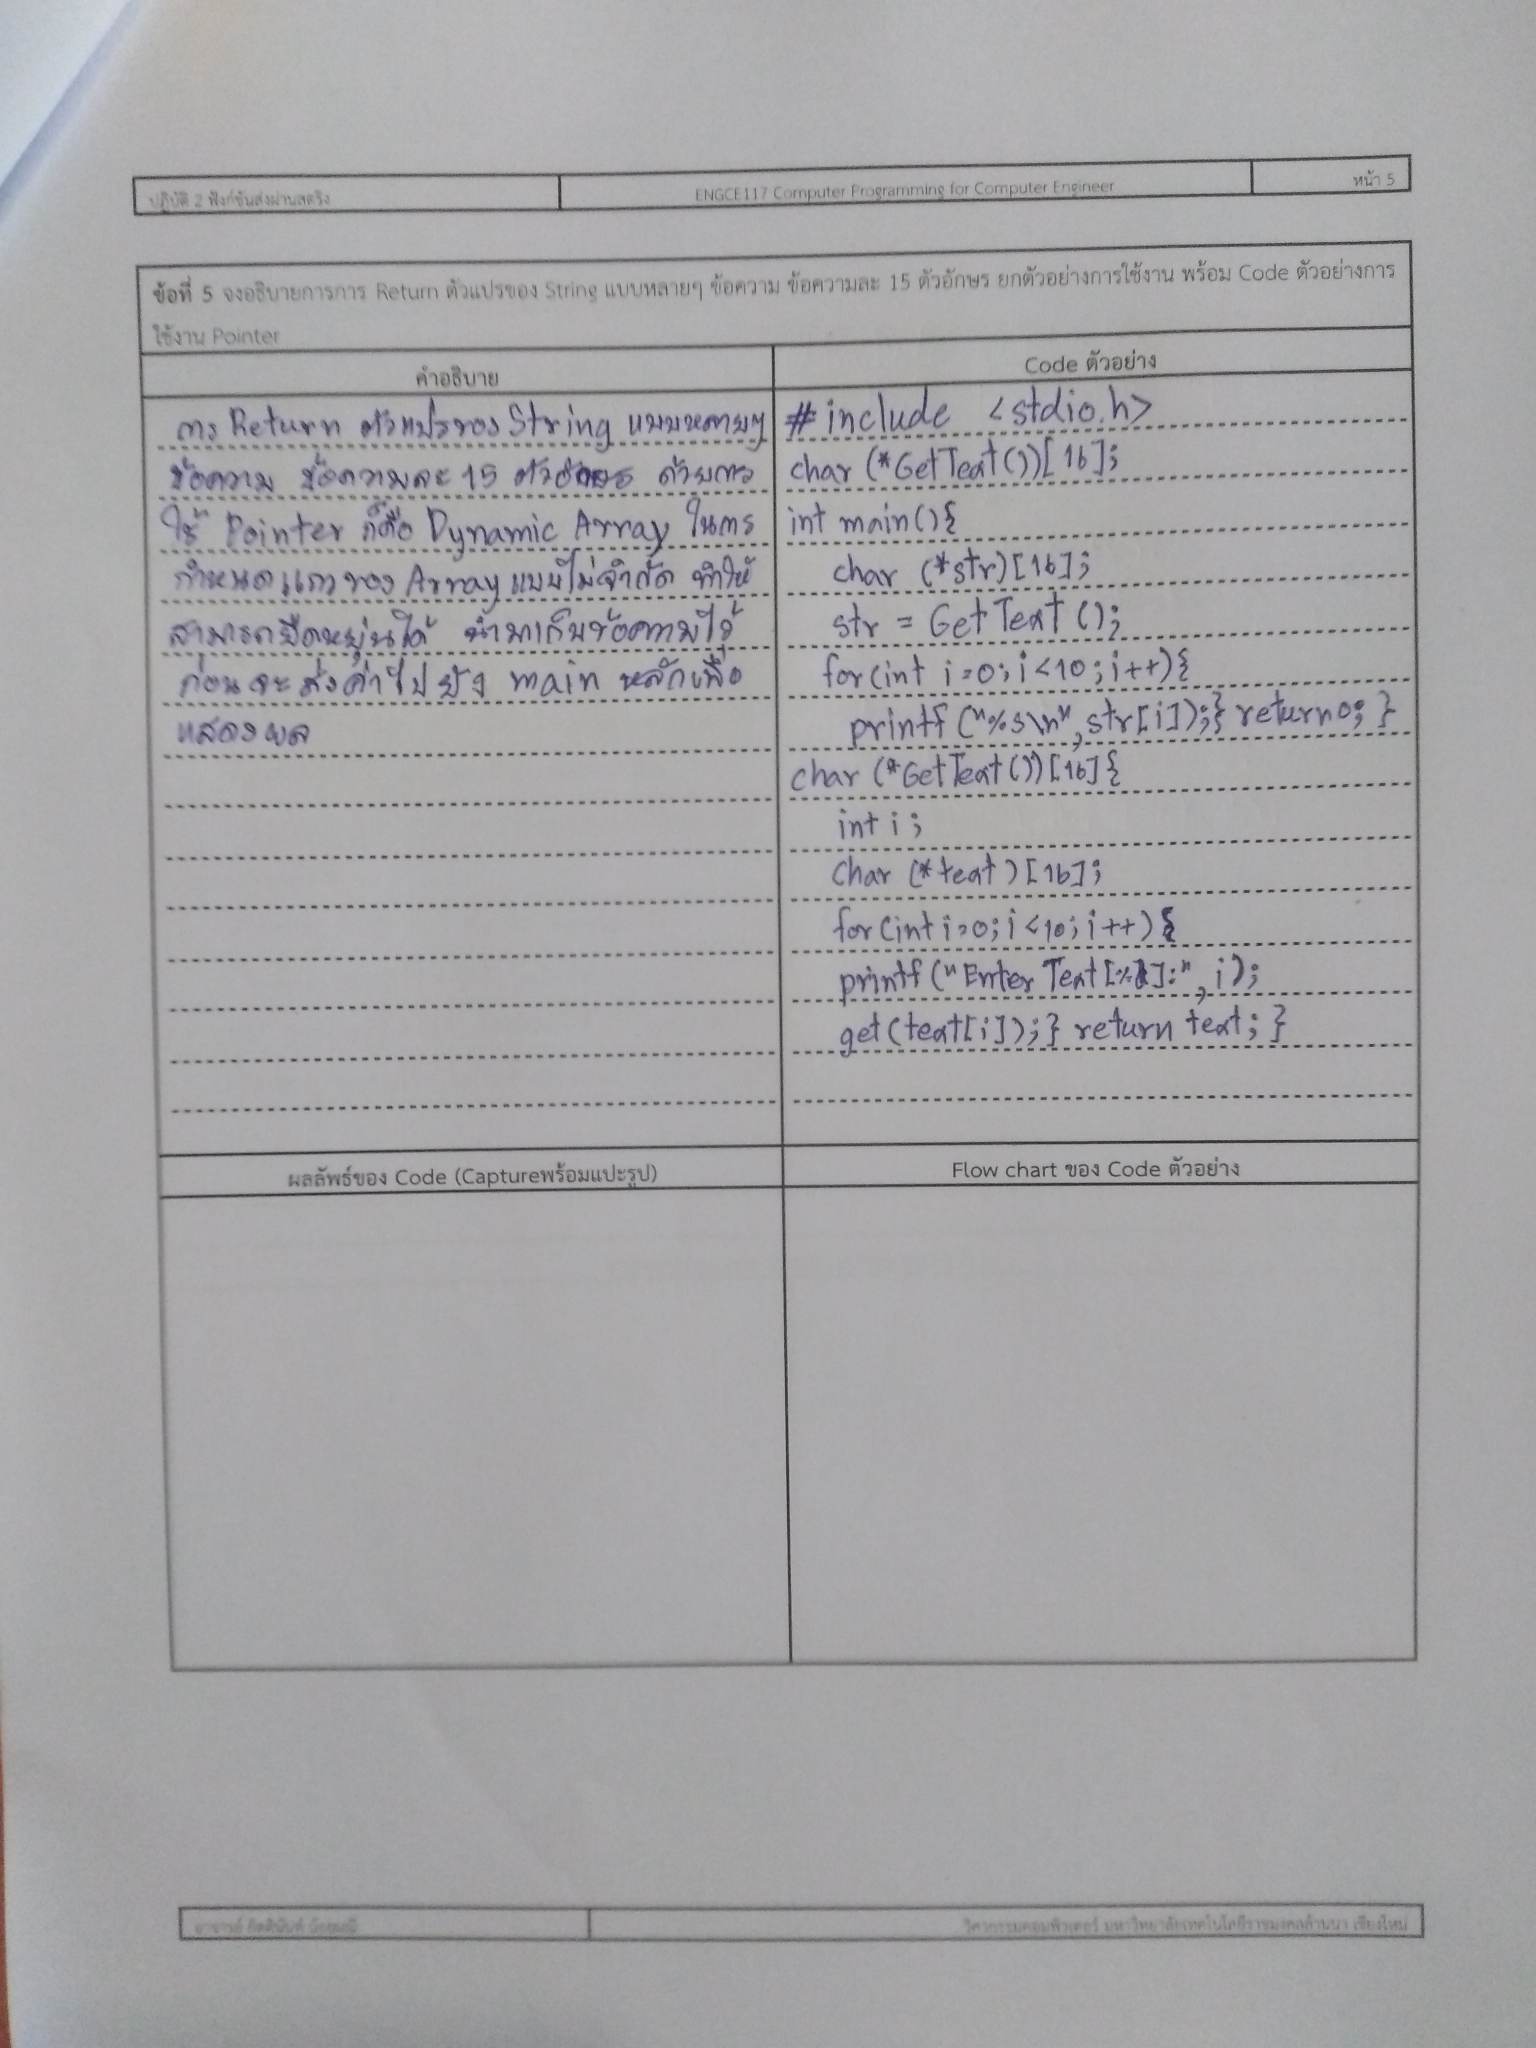 ปฏิบัติ 2 ฟังก์ชันส่งผ่านสตริง
ENGCE117 Computer Programming for Computer Engineer
หน้า 5
ข้อที่ 5 จงอธิบายการการ Return ตัวแปรของ String แบบหลายๆ ข้อความ ข้อความละ 15 ตัวอักษร ยกตัวอย่างการใช้งาน พร้อม Code ตัวอย่างการ
ใช้งาน Pointer
คำอธิบาย
การ Return ตัวแปรของ String แบบหลายๆ
ข้อความ ข้อความละ 15 ตัวอักษร ด้วยการ
ใช้ Pointer ก็คือ Dynamic Array ในการ
กำหนดแถวของ Array แบบไม่จำกัด ทำให้
สามารถยืดหยุ่นได้ นำมาเก็บข้อความไว้
ก่อนจะส่งค่าไปยัง main หลักเพื่อ
แสดงผล
Code ตัวอย่าง
#include <stdio.h>
char (*GetText())[16];
int main(){
char (*str)[16];
str = GetText();
for(int i=0;i<10;i++){
printf("%s\n",str[i]);} return 0; }
char (*GetText())[16]{
int i ;
char (*text)[16];
for(int i=0;i<10;i++){
printf("Enter Text[%d]:",i);
get(text[i]);} return text; }
ผลลัพธ์ของ Code (Captureพร้อมแปะรูป)
Flow chart ของ Code ตัวอย่าง
อาจารย์
วิศวกรรมคอมพิวเตอร์ มหาวิทยาลัยเทคโนโลยีราชมงคลล้านนา เชียงใหม่